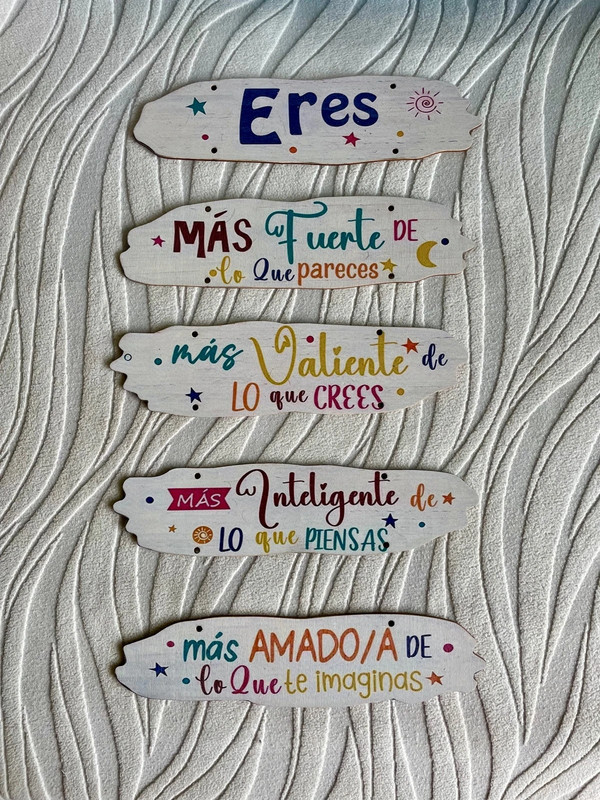 Eres
MÁS Fuerte DE
lo Que pareces
más Valiente de
LO que CREES
MÁS Inteligente de
LO que PIENSAS
más AMADO/A DE
lo Que te imaginas